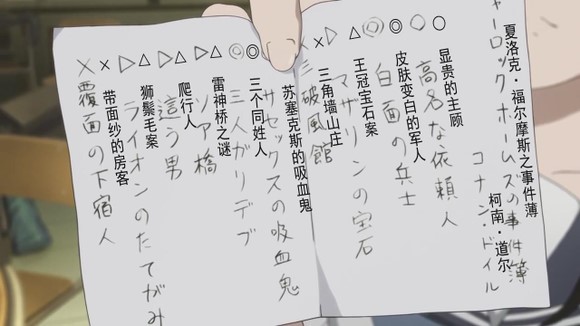 夏洛克·福尔摩斯之事件薄
ャーロックホームズの事件簿
柯南·道尔
コナン・ドイル
显贵的主顾
高名な依頼人
皮肤变白的军人
白面の兵士
王冠宝石案
マザリンの宝石
三角墙山庄
三破風館
苏塞克斯的吸血鬼
サセックスの吸血鬼
三个同姓人
三人ガリデブ
雷神桥之谜
ソア橋
爬行人
這う男
狮鬃毛案
ライオンのたてがみ
带面纱的房客
覆面の下宿人